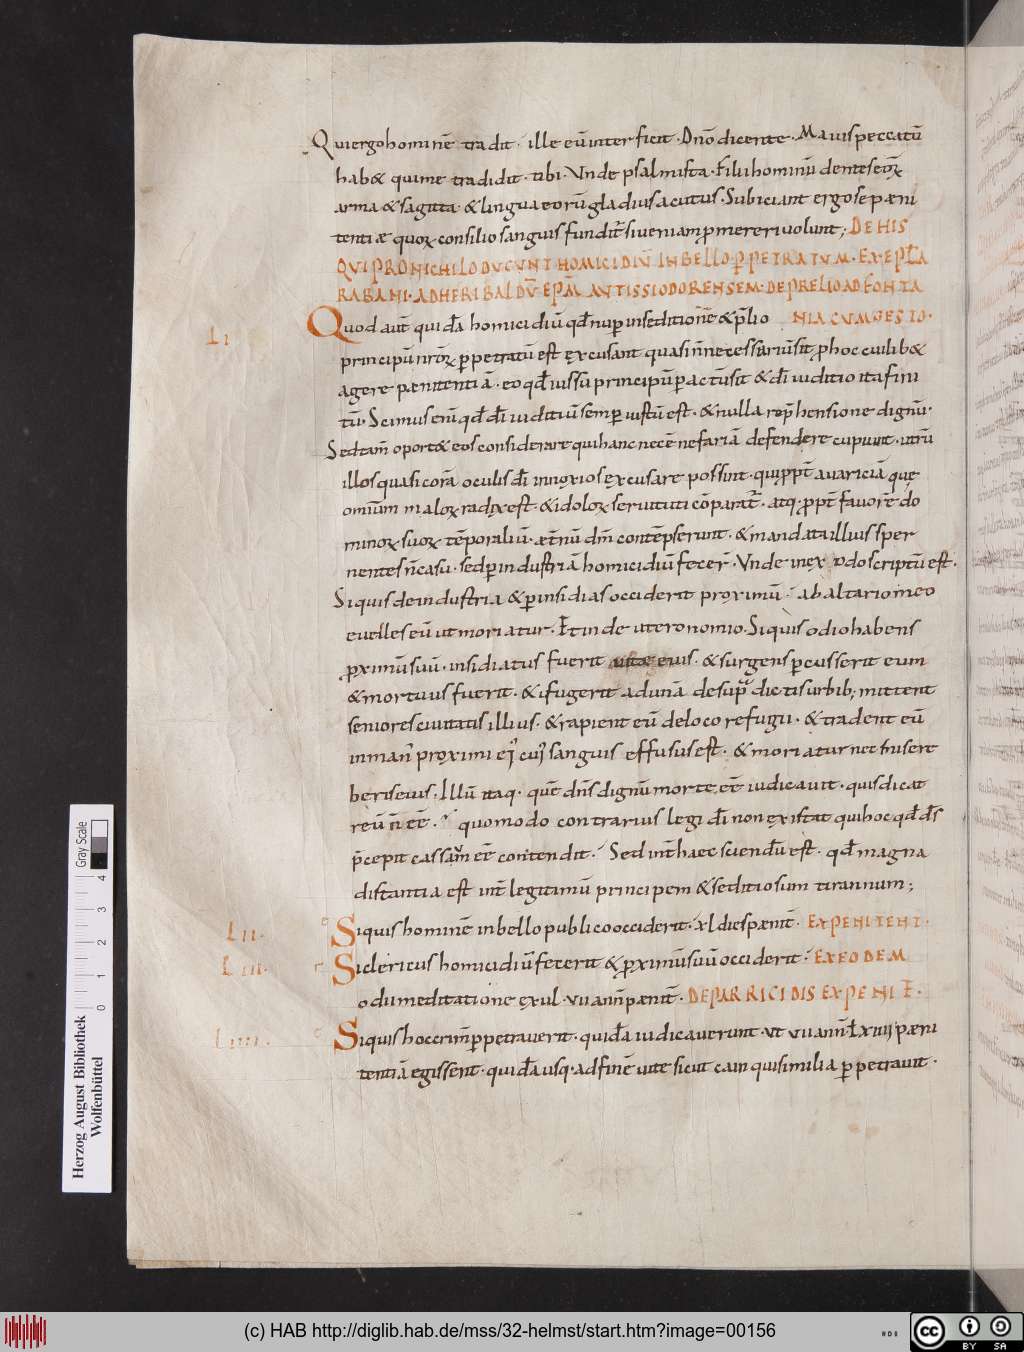 Qui ergo hominē tradit · ille eū interficit · Dn̄o dicente · Maius peccatū
hab& qui me tradidit · tibi · Vnde psalmista · Filii hominū dentes eoꝝ
arma & sagitta · & lingua eorū gladius acutus · Subiciant ergo se pæni
tentiæ quoꝝ consilio sanguis fundit̄ si ueniam ꝓmereri uolunt; DE HIS
QUI PRO NICHILO DUCUNT HOMICIDIŪ IN BELLO ꝐPETRATUM · EX EPL̄A
RABANI · AD HERIBALDŪ EPM̄ AUTISSIODORENSEM · DE PRELIO AD FONTA
LI
Quod aut̄ quidā homicidiū qd̄ nuꝑ in seditionē & p̄lio NIACUM GESTO ·
principū nr̄oꝝ ꝑpetratū est excusant quasi n̄ necessariū sit ꝓ hoc cuilib&
agere pænitentiā · eo qd̄ iussū principū ꝑactū sit & dī iuditio ita fini
tū · Scimus enī qd̄ dī iuditiū semꝑ iustū est · & nulla rep̄hensione dignū ·
Sed tam̄ oport& eos considerare qui hanc necē nefariā defendere cupiunt · utrū
illos quasi corā oculis dī innoxios excusare possint · qui ꝓpt̄ auariciā que
omium maloꝝ radix est · & idoloꝝ seruituti cōparat̄ · atq · ꝓpt̄ fauorē do
minoꝝ suoꝝ tēporaliū · æt̄nū dm̄ contēpserunt · & mandata illius sper
nentes n̄ casu · sed ꝑ industriā homicidiū fecer̄ · Vnde in exodo scriptū est ·
Si quis de industria & ꝑ insidias occiderit proximū · ab altario meo
euelles eū ut moriatur · Et in deuteronomio · Si quis odio habens
ꝓximū suū · insidiatus fuerit uitæ eius · & surgens ꝑcusserit eum
& mortuus fuerit · & ifugerit ad unā de supᵃdictis urbib; mittent
seniores ciuitatis illius · & rapient eū de loco refugii · & tradent eū
in man̄ proximi ei cui sanguis effusus est · & moriatur nec misere
beris eius · Illū itaq · quē dn̄s dignū morte eē iudicauit · quis dicat
reū n̄ eē · quomodo contrarius legi dī non existat qui hoc qd̄ d̄s
p̄cepit cassam̄ eē contendit · Sed int̄ haec sciendū est · qd̄ magna
distantia est int̄ legitimū principem & seditiosum tirannum;
LII · Si quis hominē in bello publico occiderit · xl dies pænit̄ · EX PENITENT ·
LIII · Si clericus homicidiū fecerit & ꝓximū suū occiderit · EX EODEM
odii meditatione exul · vii ann̄ pænit̄ · DE PARRICIDIS EX PENIT̄ ·
LIIII · Si quis hoc crim̄ ꝑpetrauerit · quidā iudicauerunt · ut vii ann̄ ł xiiii pæni
tentiā egissent · quidā usq · ad finē uite sicut cain qui similia ꝑpetrauit ·
Herzog August Bibliothek
Wolfenbüttel
0 1 2 3 4
Gray Scale
(c) HAB http://diglib.hab.de/mss/32-helmst/start.htm?image=00156
cc BY SA